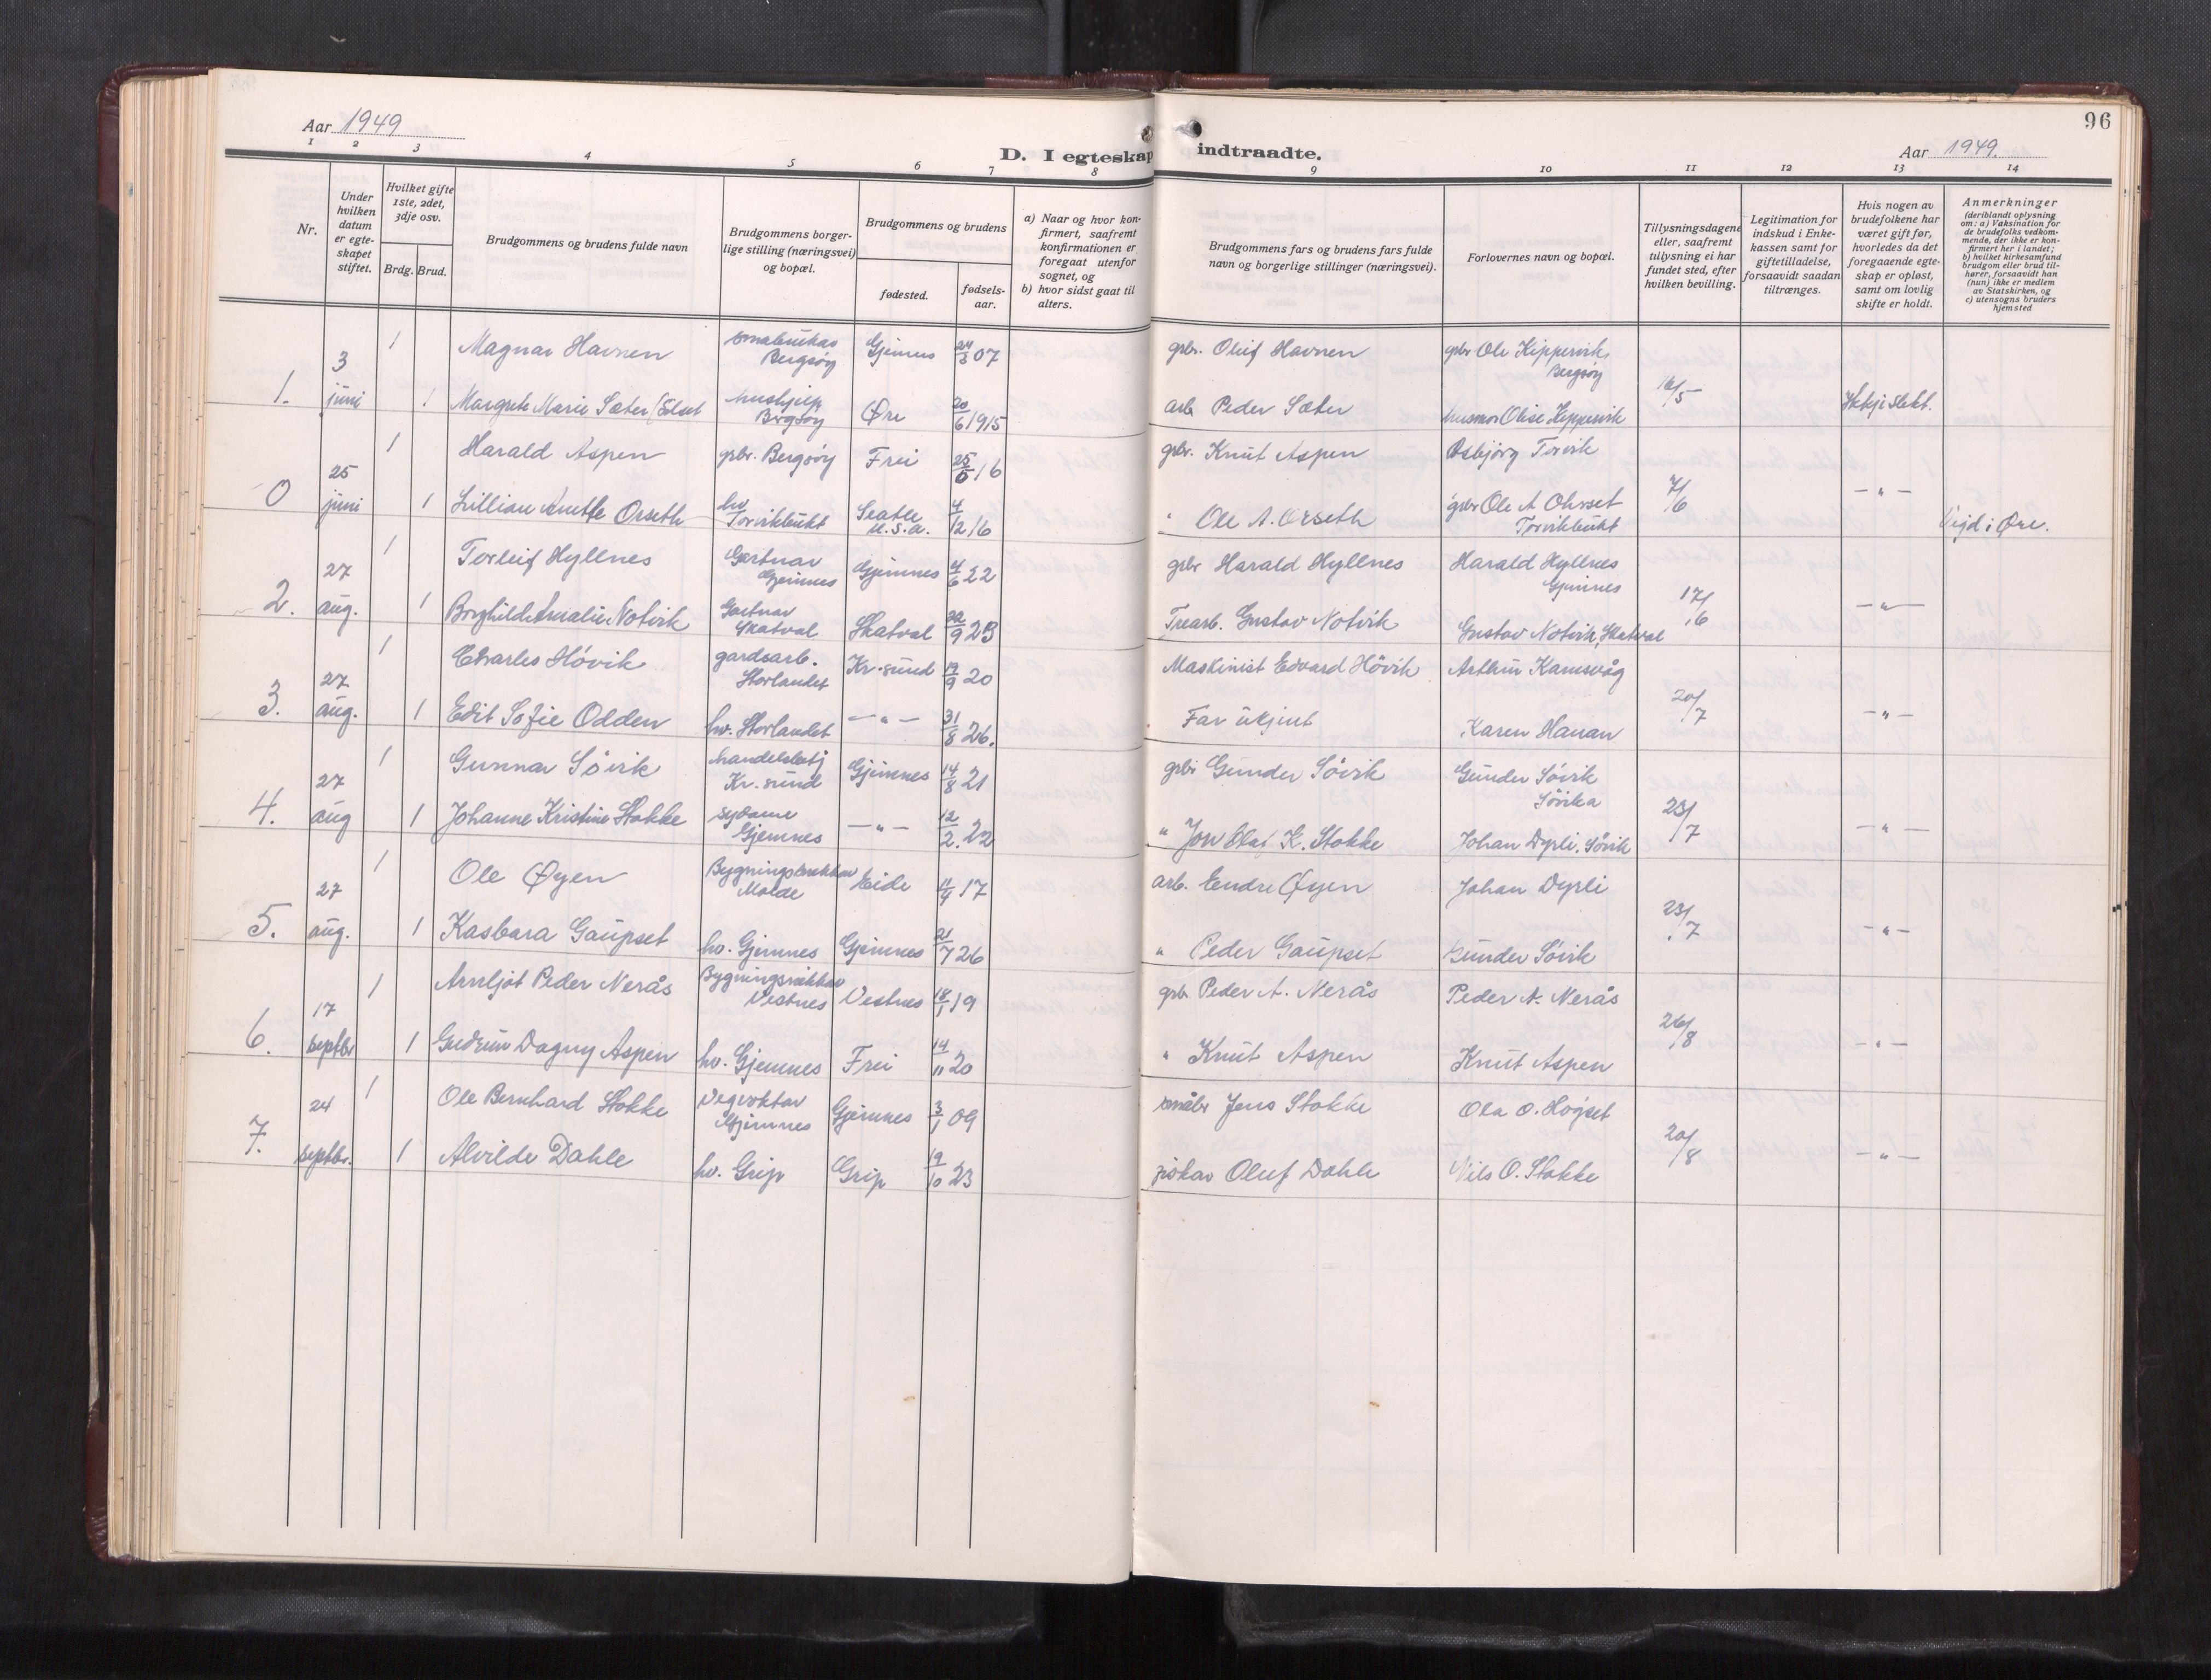 96
Aar 1949
D. I egteskap indtraadte.
Aar 1949.
1 2 3 4 5 6 7 8 9 10 11 12 13 14
Nr.
Under hvilken datum er egteskapet stiftet.
Hvilket gifte 1ste, 2det, 3dje osv.
Brdg. Brud.
Brudgommens og brudens fulde navn
Brudgommens borgerlige stilling (næringsvei) og bopæl.
Brudgommens og brudens
fødested.
fødselsaar.
a) Naar og hvor konfirmert, saafremt konfirmationen er foregaat utenfor sognet, og
b) hvor sidst gaat til alters.
Brudgommens fars og brudens fars fulde navn og borgerlige stillinger (næringsvei).
Forlovernes navn og bopæl.
Tillysningsdagene eller, saafremt tillysning ei har fundet sted, efter hvilken bevilling.
Legitimation for indskud i Enkekassen samt for giftetilladelse, forsaavidt saadan tiltrænges.
Hvis nogen av brudefolkene har været gift før, hvorledes da det foregaaende egteskap er opløst, samt om lovlig skifte er holdt.
Anmerkninger
(deriblandt oplysning om: a) Vaksination for de brudefolks vedkommende, der ikke er konfirmert her i landet; b) hvilket kirkesamfund brudgom eller brud tilhører, forsaavidt han (hun) ikke er medlem av Statskirken, og c) utensogns bruders hjemsted
1. 3 juni
1 Magnar Havnen Bergsøy Gjemnes 24/8 07 grbr. Oluf Havnen grbr Ole Kippervik, Bergsøy
1 Margrete Marie Sæter hushjelp Bergsøy Øre 20/6 1915 arb Peder Sæter husmor Olise Kippervik 16/5 Ikkje slekt.
0 25 juni
1 Harald Aspen grbr. Bergsøy Frei 25/6 16 grbr. Knut Aspen Asbjörg Torvik
1 Lillian Anette Orseth hv Torvikbukt Seatle U.S.A. 4/12 16 " Ole A. Orseth grbr Ole A Ohrset Torvikbukt 7/6 — " — Vigd i Øre.
2. 27 aug.
1 Torleif Hyllnes Gartnar Gjemnes Gjemnes 4/6 22 grbr Harald Hyllnes Harald Hyllnes Gjemnes
1 Borghild Amalie Notvik Gartnar Skatval Skatval 22/9 23 Trearb. Gustav Notvik Gustav Notvik, Skatval 17/6 — " —
3. 27 aug.
1 Charles Hövik gardsarb. Storlandet Kr.sund 19/9 20 Maskinist Edvard Hövik Arthur Kamsvåg
1 Edit Sofie Odden hv. Storlandet — " — 31/8 26. Far ukjent Karen Hanan 20/7 — " —
4. 27 aug
1 Gunnar Sövik Kr.sund Gjemnes 14/8 21 grbr Gunder Sövik Gunder Sövik Sövika
1 Johanne Kristine Stokke sydame Gjemnes — " — 12/2. 22 " Jon Olaf K. Stokke Johan Dyrli, Sövik 23/7 — " —
5. 27 aug.
1 Ole Øyen Molde Eide 4/4 17 arb. Endre Øyen Johan Dyrli
1 Kasbara Gaupset hv. Gjemnes Gjemnes 21/7 26 " Peder Gaupset Gunder Sövik 23/7 — " —
6. 17 septbr
1 Arnljot Peder Nerås Vestnes Vestnes 18/1 19 grbr. Peder A. Nerås Peder A. Nerås
1 Gudrun Dagny Aspen hv. Gjemnes Frei 14/11 20 " Knut Aspen Knut Aspen 26/8 — " —
7. 24 septbr.
1 Ole Bernhard Stokke Vegvoktar Gjemnes Gjemnes 3/1 09 småbr Jens Stokke Ola O. Högset
1 Alvilde Dahle hv. Grip Grip 19/10 23 fiskar Oluf Dahle Nils O. Stokke 20/8 — " —